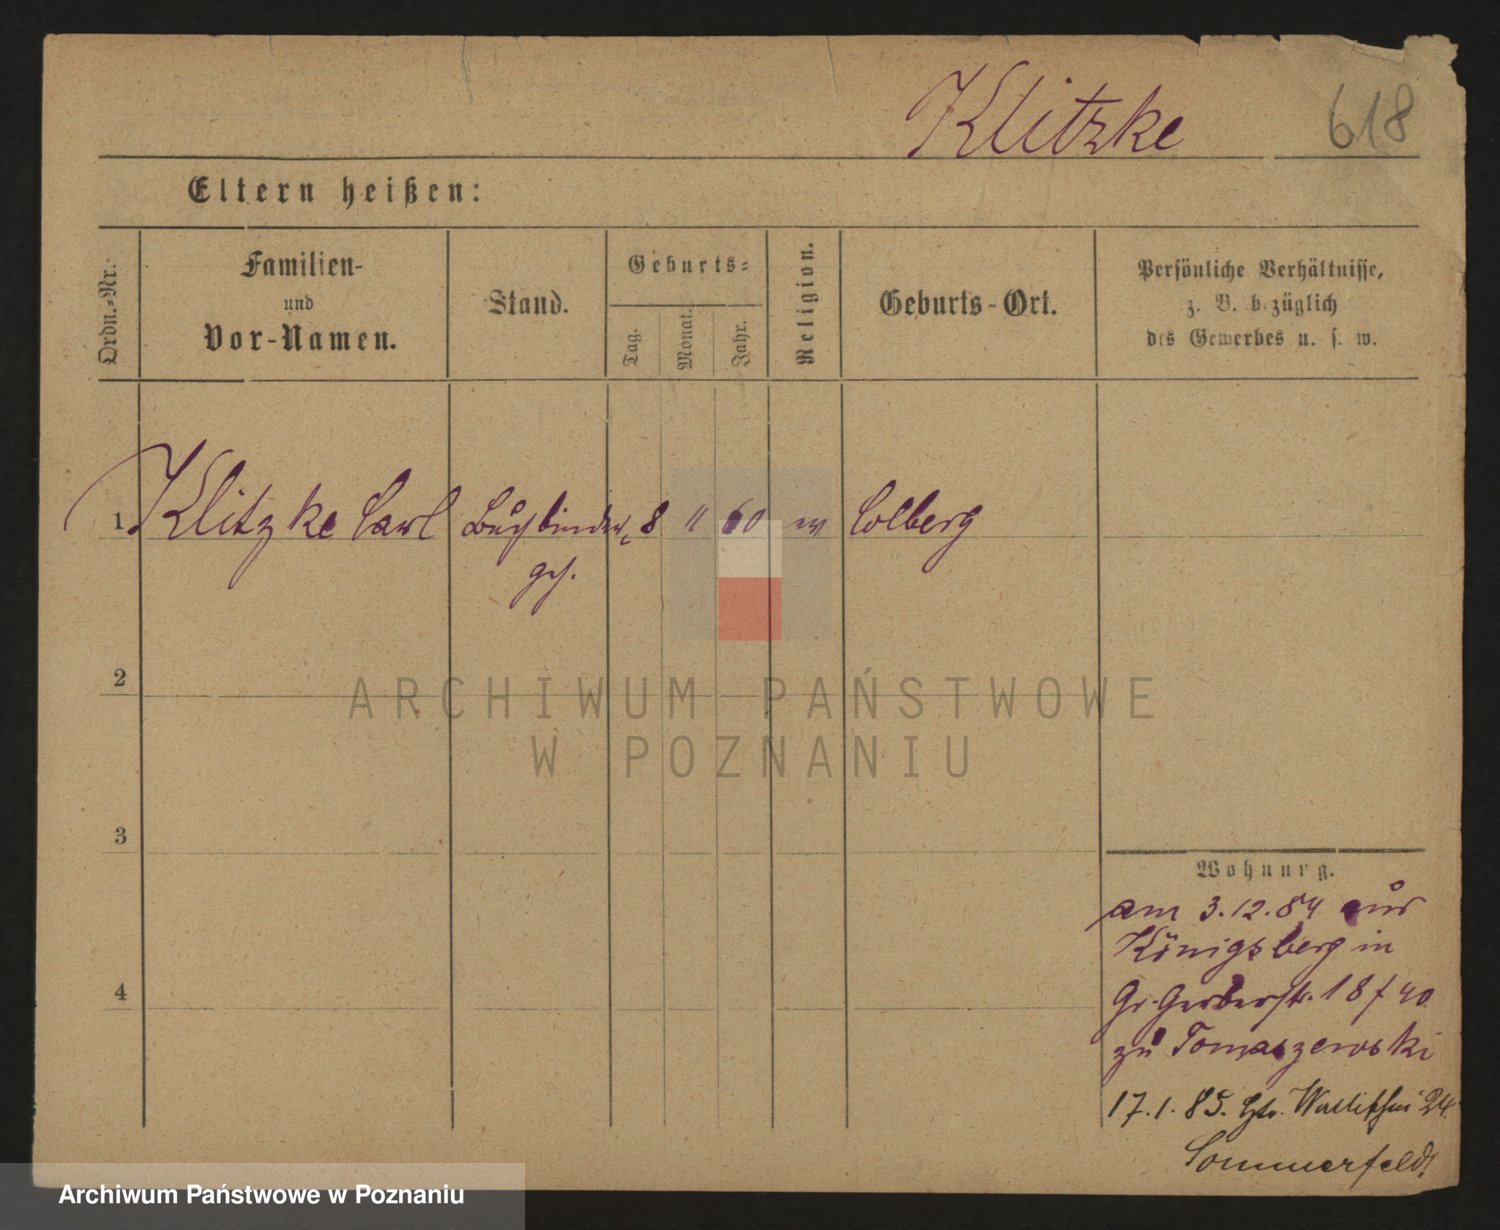 Klitzke 618
Eltern heißen:
Ordn.-Nr.
Familien-
und
Vor-Namen.
Stand.
Geburts-
Tag.
Monat.
Jahr.
Religion.
Geburts-Ort.
Persönliche Verhältnisse,
z. B. bezüglich
des Gewerbes u. s. w.
1 Klitzke Carl Buchbinder 8 11 60 ev Colberg
2
3
4
Wohnung.
am 3.12.84 aus
Königsberg in
Gr. Gerberstr. 18 / 40
zu Tomaszewski
17.1.85. 24
Sommerfeldt
ARCHIWUM PAŃSTWOWE
W POZNANIU
Archiwum Państwowe w Poznaniu